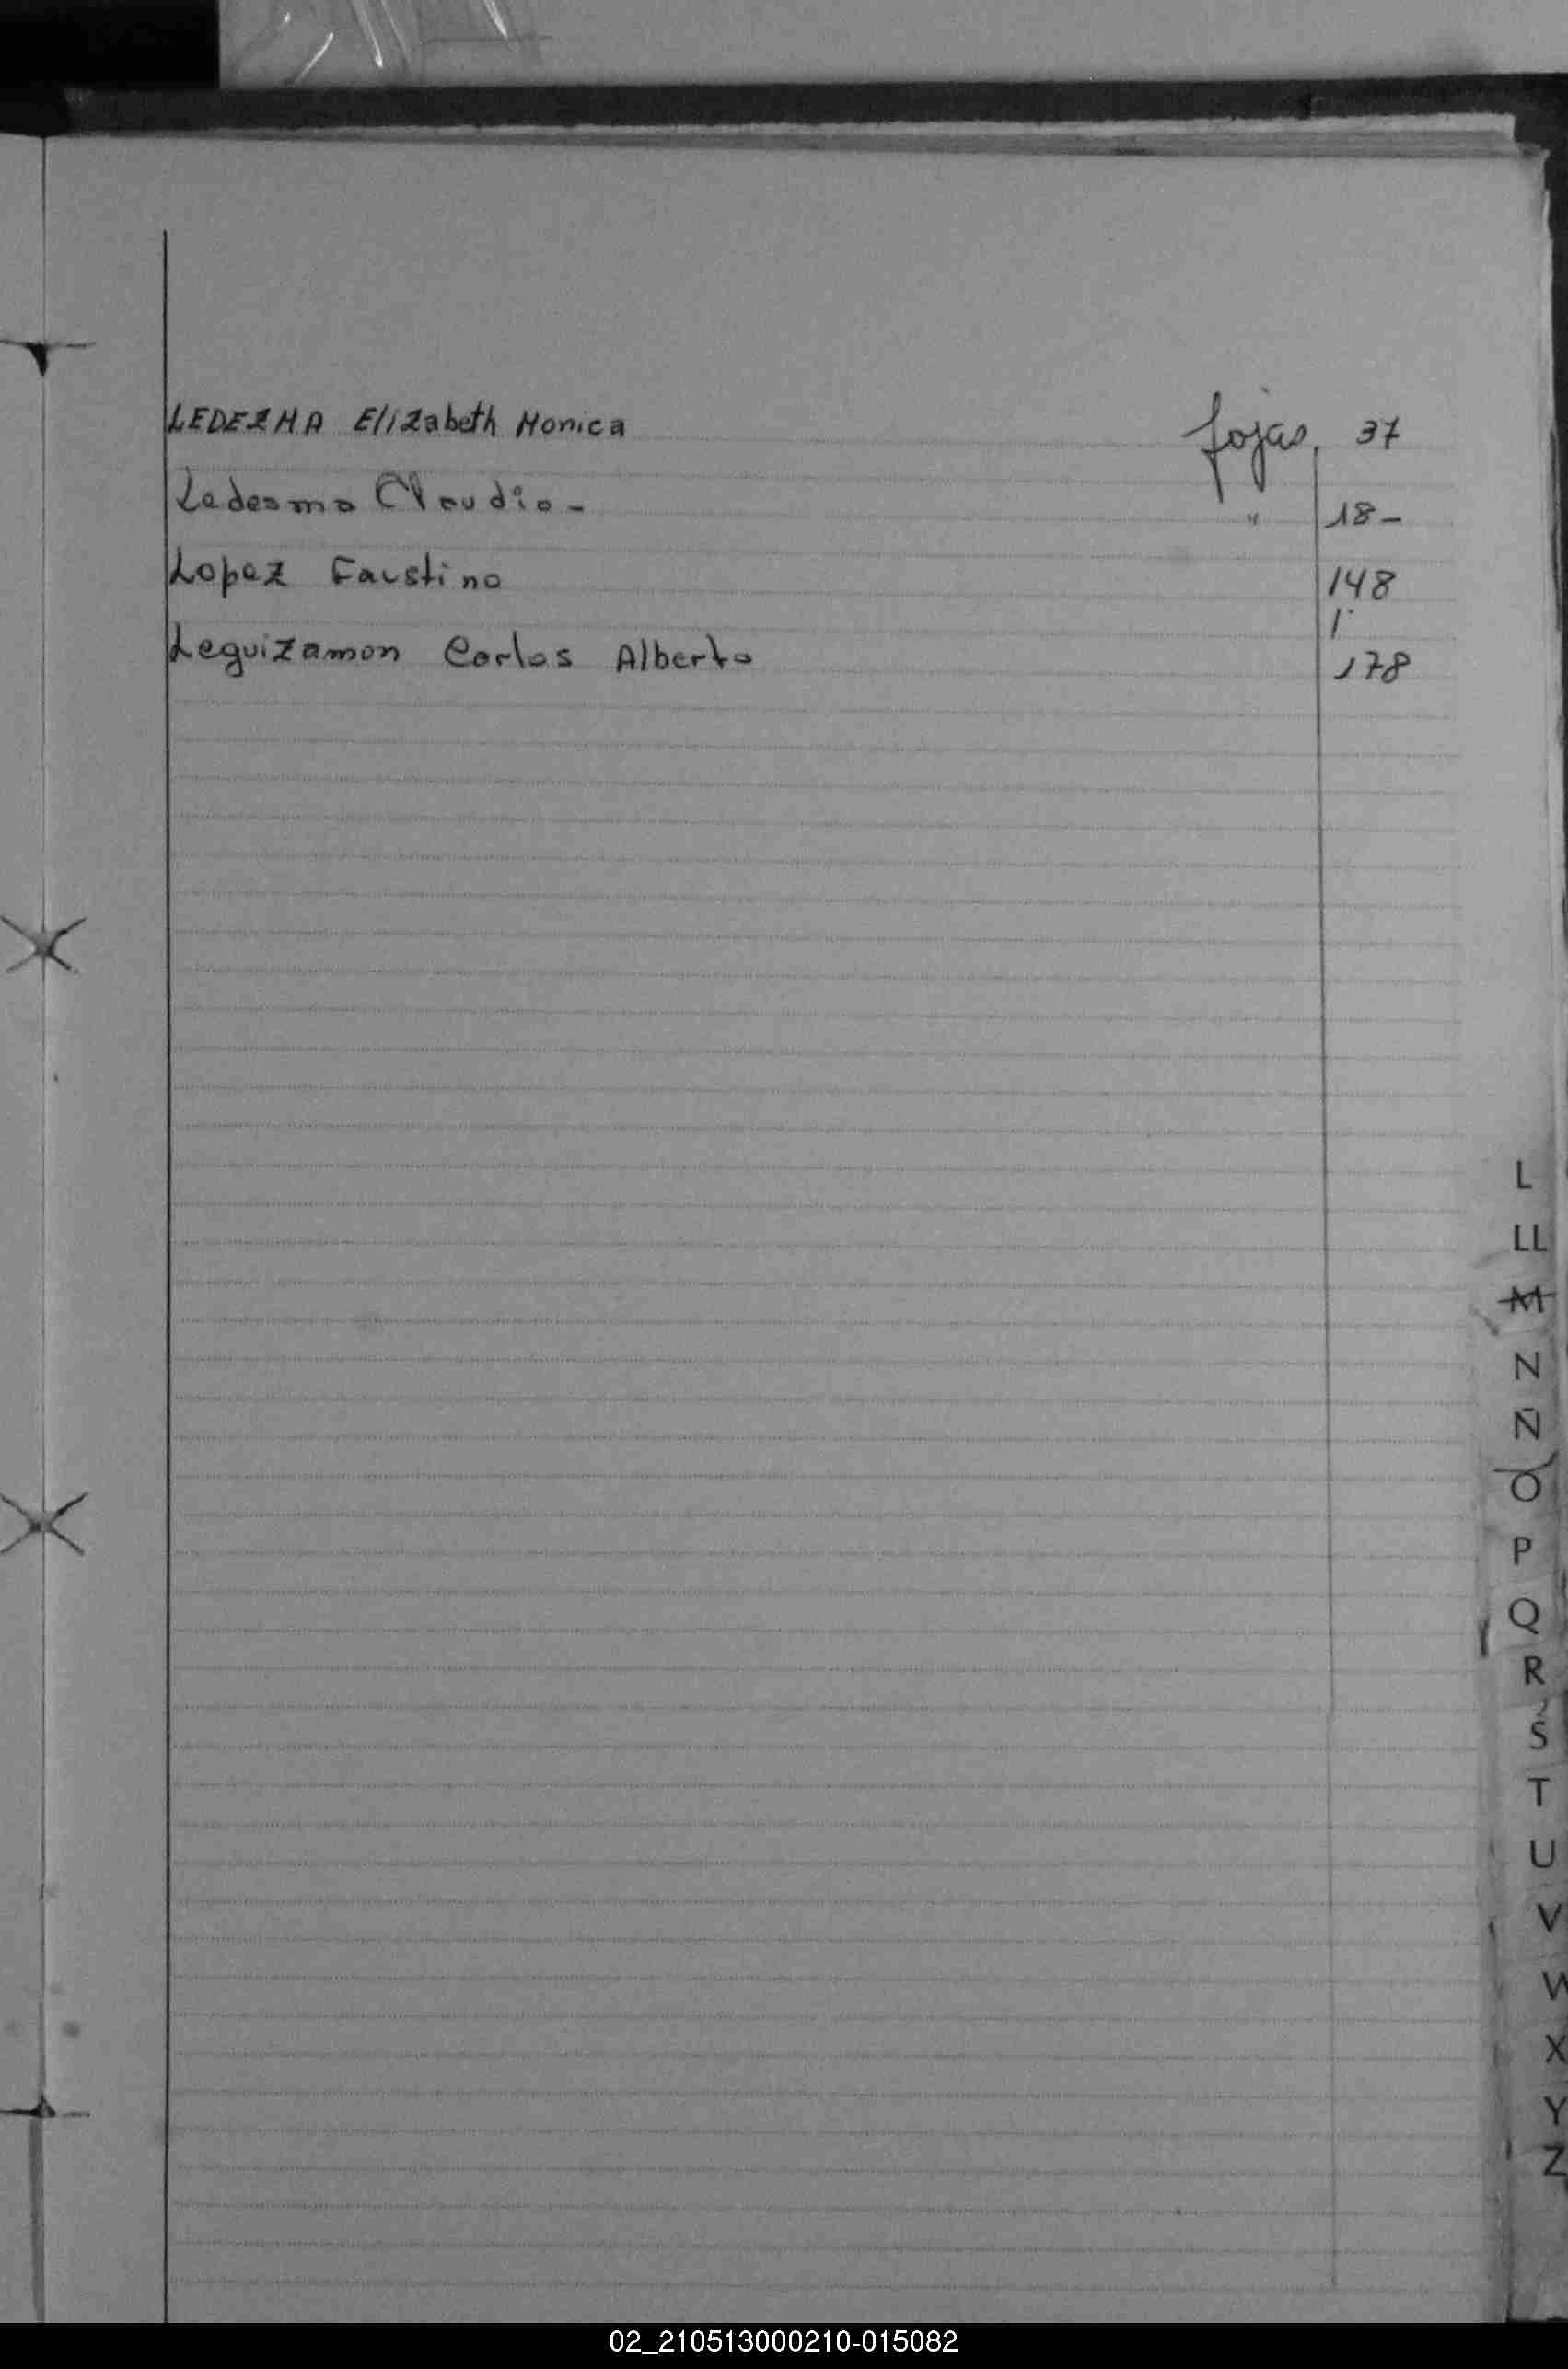 LEDEZMA Elizabeth Monica fojas. 37
Ledesma Claudio - " 18 -
Lopez Faustino 148
Leguizamon Carlos Alberto 178
L
LL
M
N
Ñ
O
P
Q
R
S
T
U
V
W
X
Y
Z
02_210513000210-015082